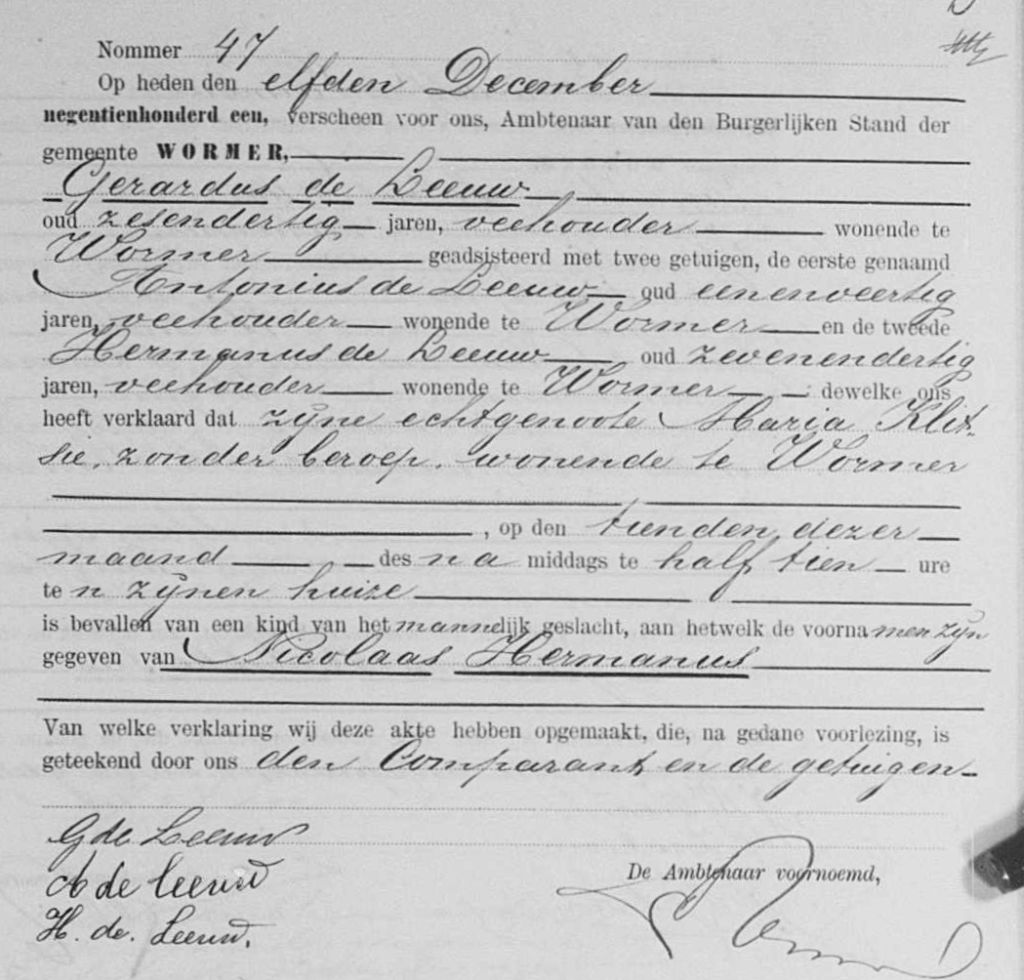 Nommer 47
Op heden den elfden December
negentienhonderd een, verscheen voor ons, Ambtenaar van den Burgerlijken Stand der
gemeente WORMER,
Gerardus de Leeuw
oud zesendertig jaren, veehouder wonende te
Wormer geadsisteerd met twee getuigen, de eerste genaamd
Antonius de Leeuw oud eenenveertig
jaren, veehouder wonende te Wormer en de tweede
Hermanus de Leeuw oud zevenendertig
jaren, veehouder wonende te Wormer ; dewelke ons
heeft verklaard dat zijne echtgenoote Maria Klit-
sie, zonder beroep, wonende te Wormer
, op den tienden dezer
maand des na middags te half tien ure
te n zijnen huize
is bevallen van een kind van het mannelijk geslacht, aan hetwelk de voornamen zijn
gegeven van Nicolaas Hermanus
Van welke verklaring wij deze akte hebben opgemaakt, die, na gedane voorlezing, is
geteekend door ons den Comparant en de getuigen
G de Leeuw
A de Leeuw
De Ambtenaar voornoemd,
H. de. Leeuw.